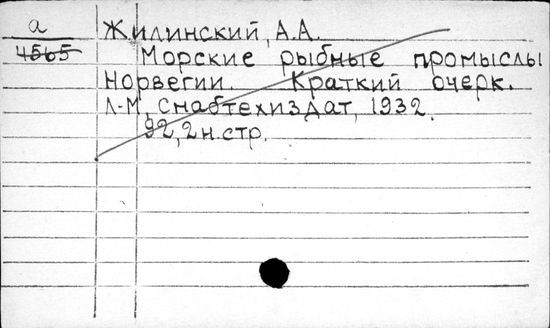 а Жилинский, А.А.
4565 Морские рыбные промыслы
Норвегии. Краткий очерк.
Л-М, Снабтехиздат, 1932.
92, 2 н.стр.